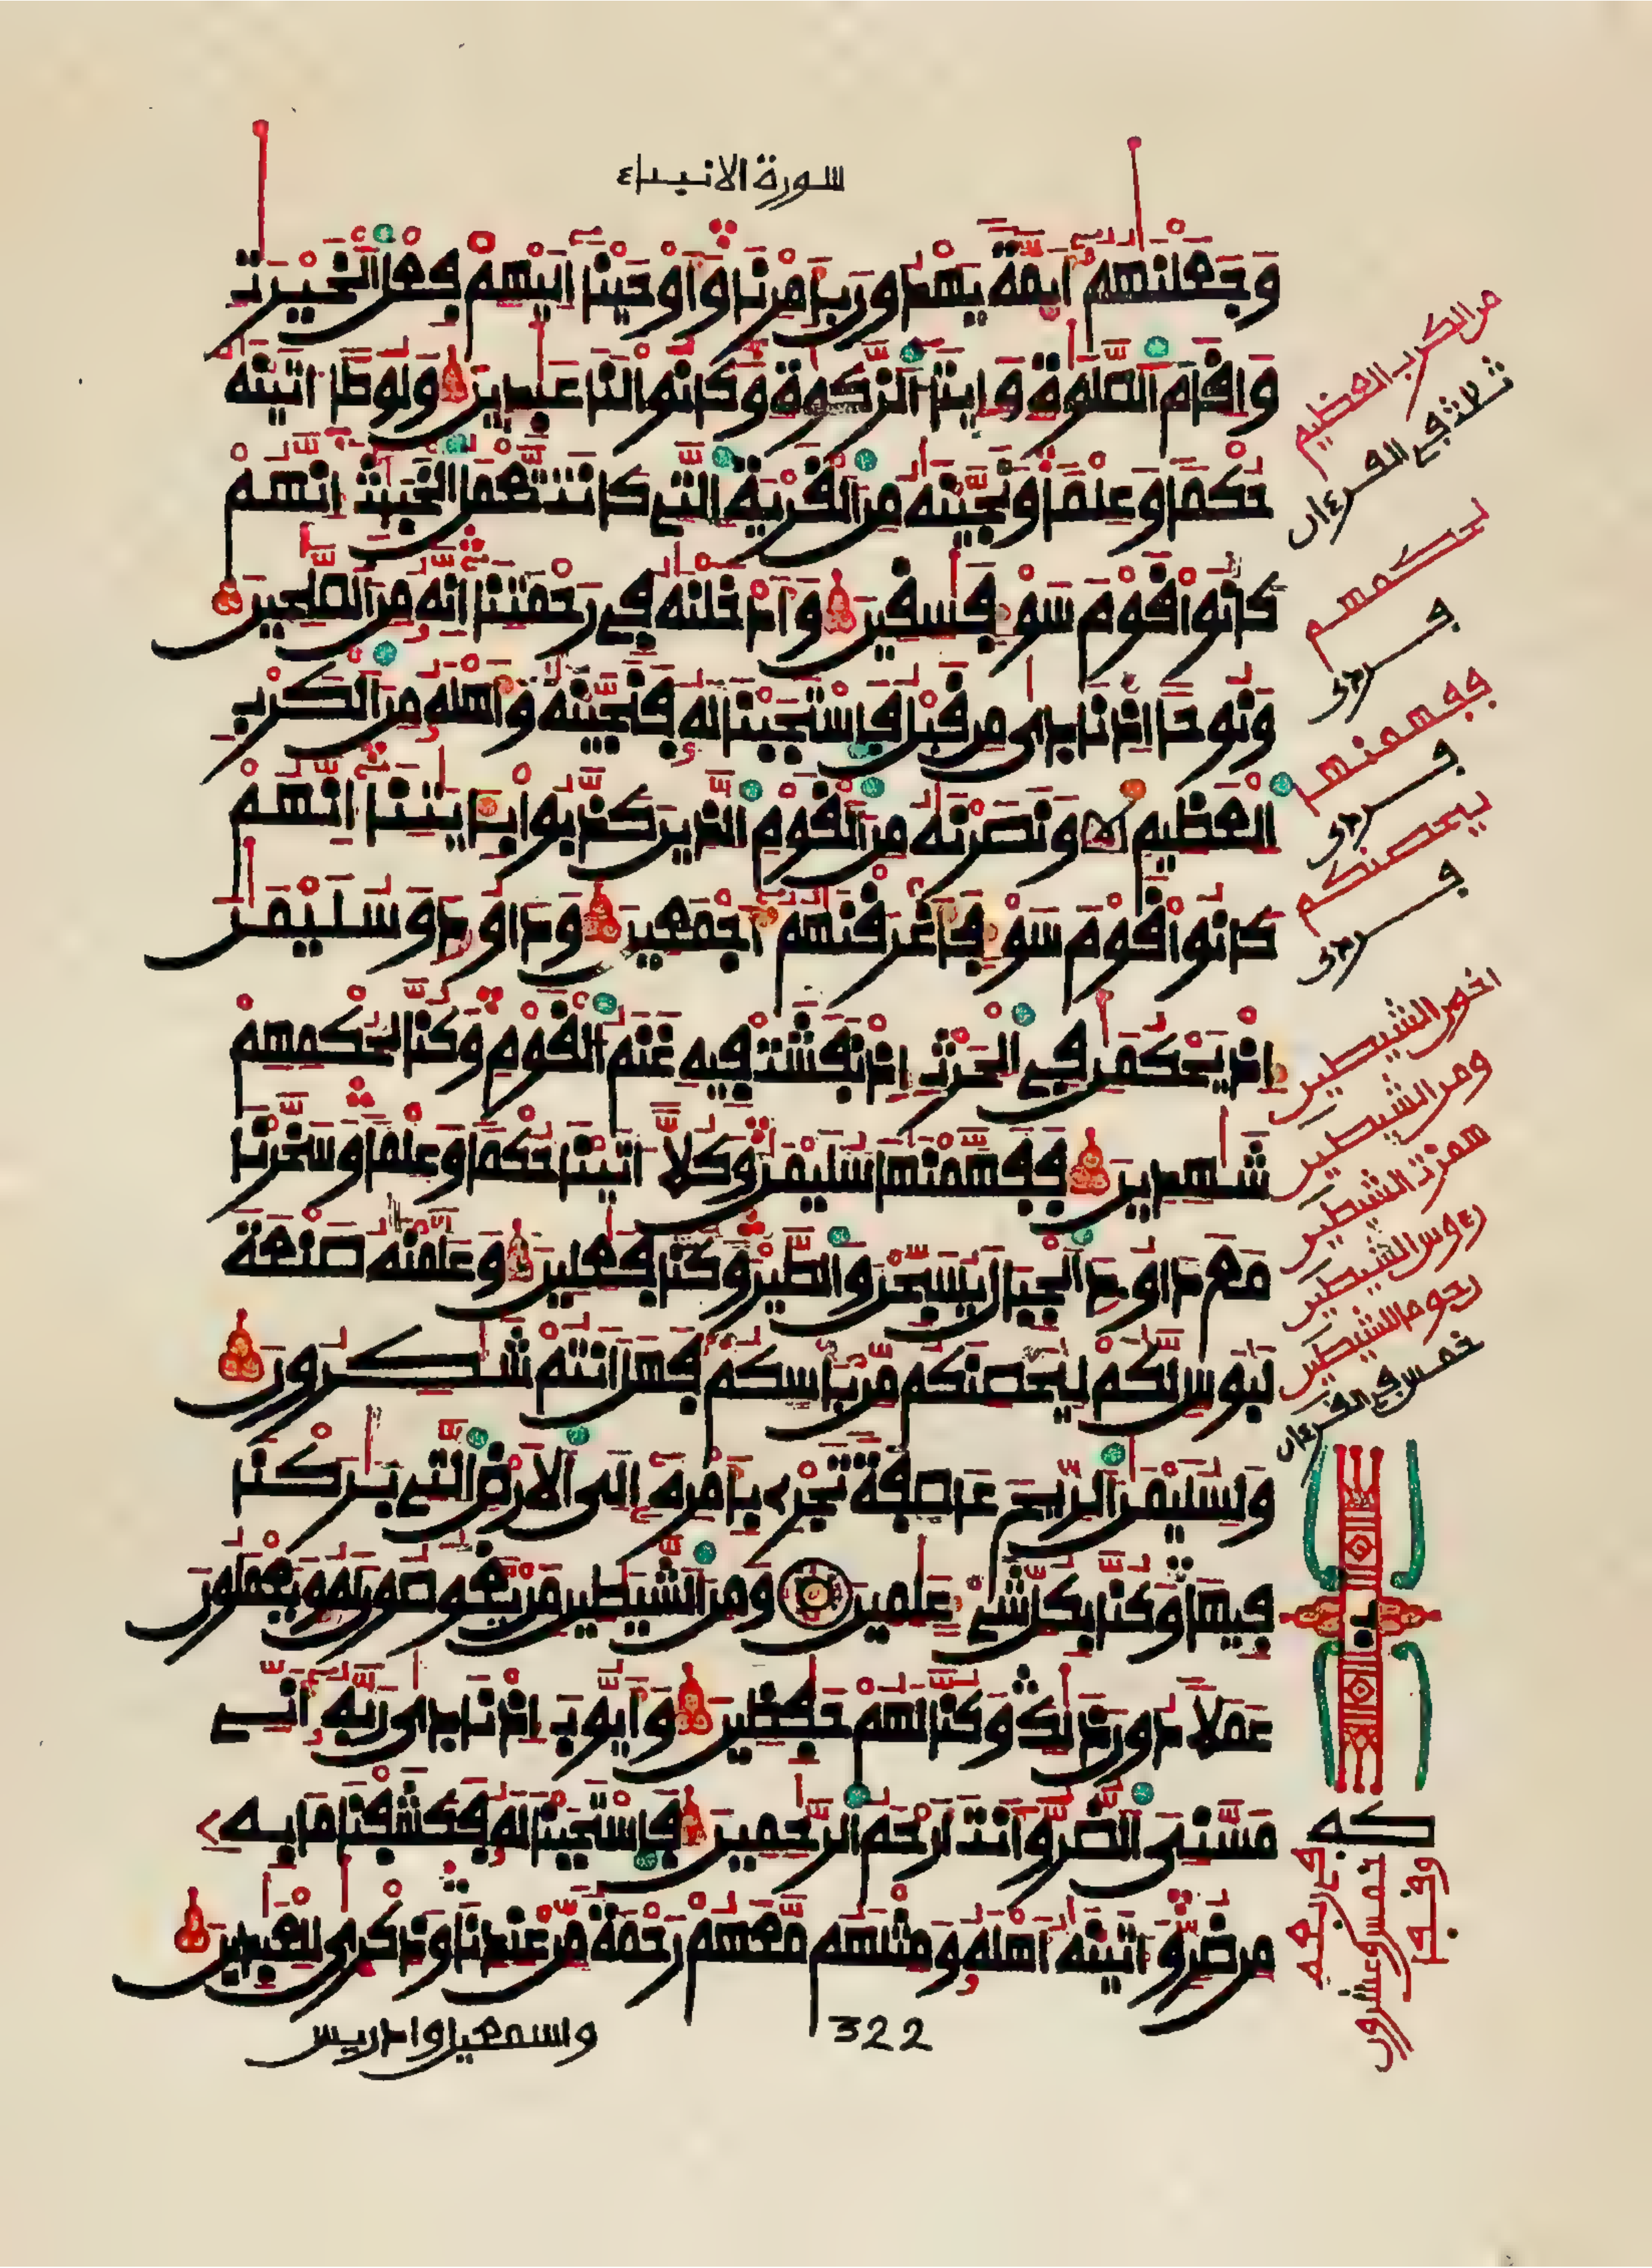 سورة الانبياء
وَجَعَلْنَٰهُمْ أَيِمَّةً يَهْدُونَ بِأَمْرِنَا وَأَوْحَيْنَا إِلَيْهِمْ فِعْلَ الْخَيْرَٰتِ
وَإِقَامَ الصَّلَوٰةِ وَإِيتَاءَ الزَّكَوٰةِ وَكَانُوا لَنَا عَٰبِدِينَ وَلُوطًا اتَيْنَٰهُ
حُكْمًا وَعِلْمًا وَنَجَّيْنَٰهُ مِنَ الْقَرْيَةِ التِي كَانَت تَّعْمَلُ الْخَبَٰئِثَ إِنَّهُمْ
كَانُوا قَوْمَ سَوْءٍ فَٰسِقِينَ وَأَدْخَلْنَٰهُ فِي رَحْمَتِنَا إِنَّهُ مِنَ الصَّٰلِحِينَ
وَنُوحًا اِذْ نَادَىٰ مِن قَبْلُ فَاسْتَجَبْنَا لَهُ فَنَجَّيْنَٰهُ وَأَهْلَهُ مِنَ الْكَرْبِ
الْعَظِيمِ وَنَصَرْنَٰهُ مِنَ الْقَوْمِ الذِينَ كَذَّبُوا بِـَٔايَٰتِنَا إِنَّهُمْ
كَانُوا قَوْمَ سَوْءٍ فَأَغْرَقْنَٰهُمْ أَجْمَعِينَ وَدَاوُدَ وَسُلَيْمَٰنَ
إِذْ يَحْكُمَٰنِ فِي الْحَرْثِ إِذْ نَفَشَتْ فِيهِ غَنَمُ الْقَوْمِ وَكُنَّا لِحُكْمِهِمْ
شَٰهِدِينَ فَفَهَّمْنَٰهَا سُلَيْمَٰنَ وَكُلًّا اتَيْنَا حُكْمًا وَعِلْمًا وَسَخَّرْنَا
مَعَ دَاوُدَ الْجِبَالَ يُسَبِّحْنَ وَالطَّيْرَ وَكُنَّا فَٰعِلِينَ وَعَلَّمْنَٰهُ صَنْعَةَ
لَبُوسٍ لَّكُمْ لِيُحْصِنَكُم مِّن بَأْسِكُمْ فَهَلْ أَنتُمْ شَٰكِرُونَ
وَلِسُلَيْمَٰنَ الرِّيحَ عَاصِفَةً تَجْرِي بِأَمْرِهِ إِلَى الْأَرْضِ التِي بَٰرَكْنَا
فِيهَا وَكُنَّا بِكُلِّ شَيْءٍ عَٰلِمِينَ وَمِنَ الشَّيَٰطِينِ مَن يَغُوصُونَ لَهُ وَيَعْمَلُونَ
عَمَلًا دُونَ ذَٰلِكَ وَكُنَّا لَهُمْ حَٰفِظِينَ وَأَيُّوبَ إِذْ نَادَىٰ رَبَّهُ أَنِّي
مَسَّنِيَ الضُّرُّ وَأَنتَ أَرْحَمُ الرَّٰحِمِينَ فَاسْتَجَبْنَا لَهُ فَكَشَفْنَا مَا بِهِ
مِن ضُرٍّ وَاتَيْنَٰهُ أَهْلَهُ وَمِثْلَهُم مَّعَهُمْ رَحْمَةً مِّنْ عِندِنَا وَذِكْرَىٰ لِلْعَٰبِدِينَ
322
واسمعيل وادريس
من الكرب العظيم
ثلاث في القرءان
لحكمهم
ففهمنها
ليحصنكم
اخون الشيطين
ومن الشيطين
همزت الشيطين
رءوس الشيطين
رجوما للشيطين
خمس في القرءان